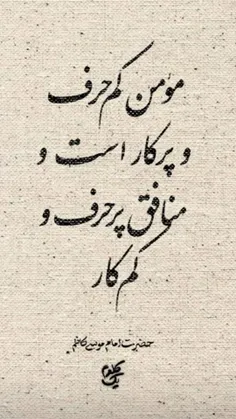 مؤمن کم حرف
و پرکار است و
منافق پرحرف و
کم کار
حضرت امام موسی کاظم